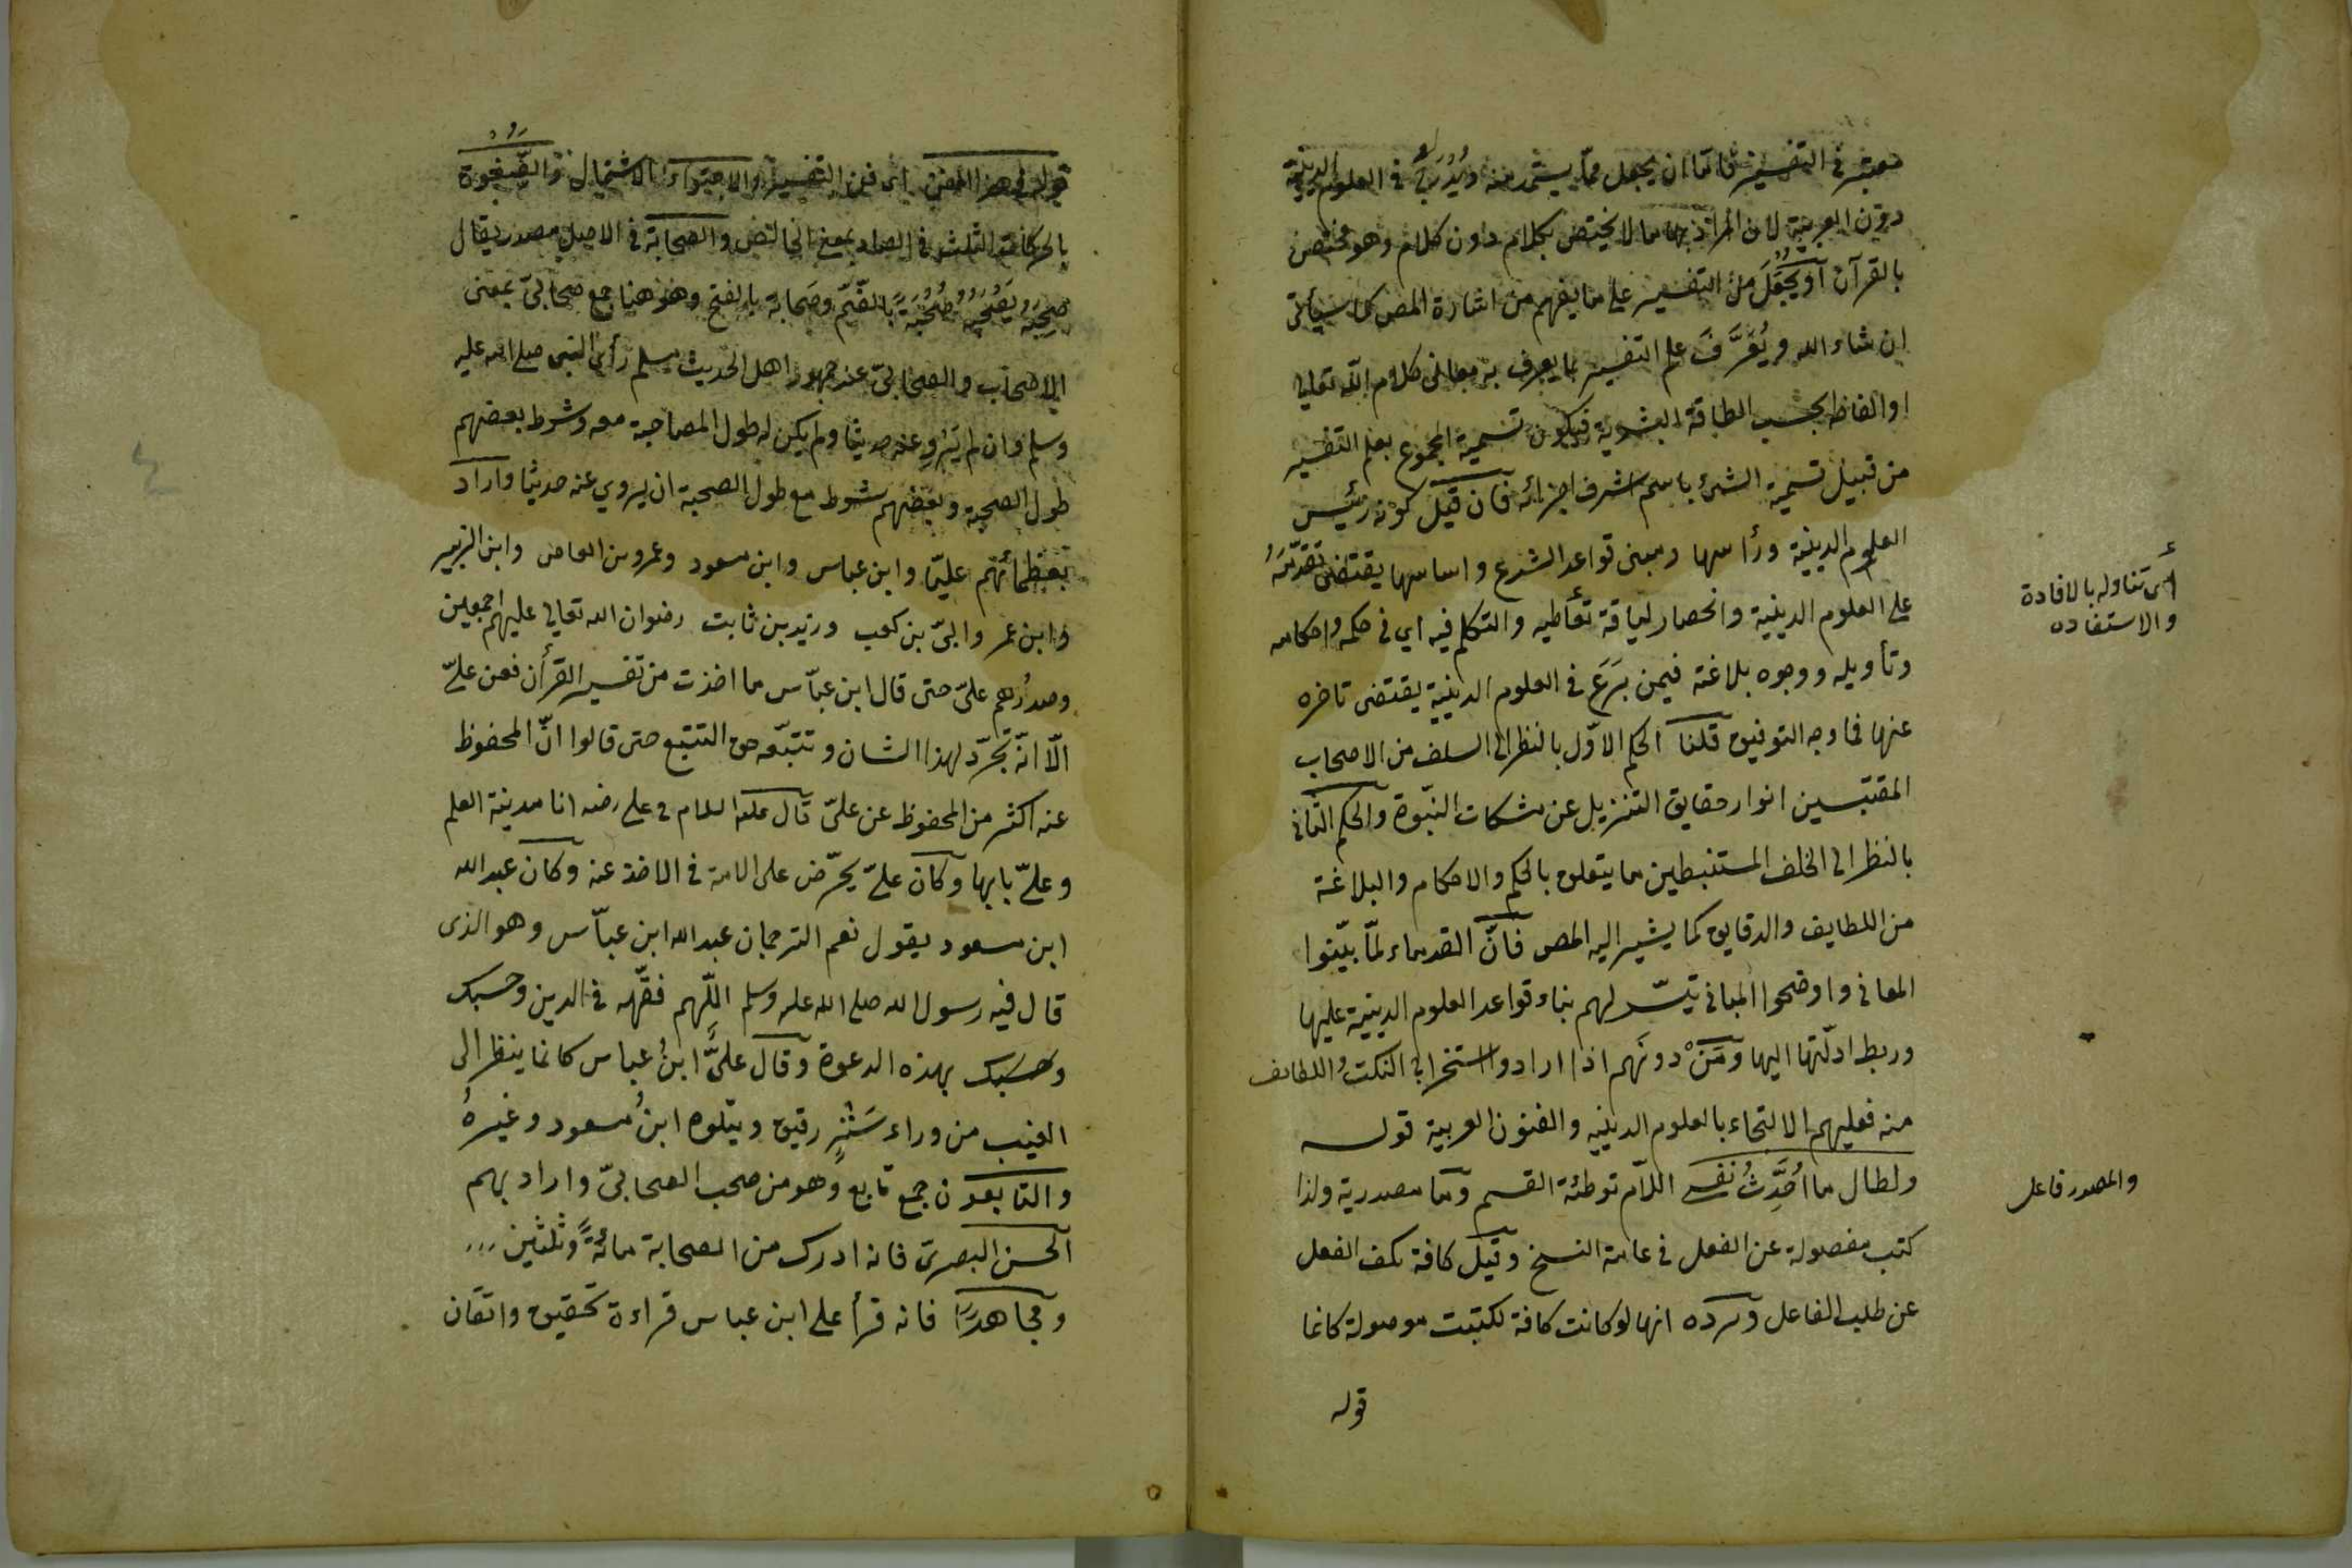 معتبر في التفسير فاما ان يجعل مما يستمد منه ويُدْرَج في العلوم الدينية
دون العربية لان المراد بها ما لا يختص بكلام دون كلام وهو مختص
بالقرآن أو يُجعَلَ من التفسير على ما يفهم من اشارة المص كما سيأتي
ان شاء الله ويُعَرَّفَ علم التفسير بما يعرف به معاني كلام الله تعالى
او الفاظه بحسب الطاقة البشرية فيكون تسمية المجموع بعلم التفسير
من قبيل تسمية الشئ باسم اشرف اجزائه فان قيل كونه رئيس
العلوم الدينية ورأسها ومبنى قواعد الشرع واساسها يقتضى تقدّمَهُ
على العلوم الدينية وانحصار لياقة تعاطيه والتكلم فيه اي في حكمه واحكامه
أي تناوله بالافادة
والاستفاده
وتأويله ووجوه بلاغته فيمن بَرَعَ في العلوم الدينية يقتضى تاخره
عنها فما وجه التوفيق قلنا الحكم الاوّل بالنظر الى السلف من الاصحاب
المقتبسين انوار حقايق التنزيل عن مشكات النبّوة والحكم الثاني
بالنظر الى الخلف المستنبطين ما يتعلق بالحكم والاحكام والبلاغة
من اللطايف والدقايق كما يشير اليه المص فانّ القدماء لمّا بيّنوا
المعاني واوضحوا المباني تيسّر لهم بناء قواعد العلوم الدينية عليها
وربط ادلّتها اليها ومَنْ دونهم اذا ارادوا استخراج النكت واللطايف
منه فعليهم الالتجاء بالعلوم الدينيه والفنون العربية قوله
ولطال ما اُحَدِّثُ نفسى اللام توطئة القسم وما مصدرية ولذا
والمصدر فاعل
كتب مفصولة عن الفعل في عامة النسخ وقيل كافة تكف الفعل
عن طلب الفاعل ويرده انها لو كانت كافة لكتبت موصولة كانما
قوله
قوله في هذا الفن اي فن التفسير والاحتواء الاشتمال والصّفوة
بالحركات الثلث في الصاد بمعنى الخالص والصحابة في الاصل مصدر يقال
صحِبَهُ يَصْحَبُهُ صُحْبَةً بالضّم وصَحابة بالفتح وهو هنا جمع صحابيّ بمعنى
الاصحاب والصحابيّ عند جمهور اهل الحديث مسلم رأى النبي صلى الله عليه
وسلم وان لم يَروِ عنه حديثا ولم يكن له طول المصاحبة معه وشرط بعضهم
طول الصحبة وبعضهم شرط مع طول الصحبة ان يروي عنه حديثا واراد
بعظمائهم عليّا وابن عباس وابن مسعود وعمرو بن العاص وابن الزبير
وابن عمر وابىّ بن كعب وزيد بن ثابت رضوان الله تعالى عليهم اجمعين
وصدرُهم علىّ حتى قال ابن عبّاس ما اخذت من تفسير القرأن فعن علىّ
الّا انّه تجرّد لهذا الشان وتتبّعه حق التتبع حتى قالوا انّ المحفوظ
عنه اكثر من المحفوظ عن علىّ قال عليه السلام في علي رضه انا مدينة العلم
وعلىّ بابها وكان علىّ يحرّض على الامة في الاخذ عنه وكان عبد الله
ابن مسعود يقول نعم الترجمان عبد الله ابن عبّاس وهو الذى
قال فيه رسول الله صلى الله عليه وسلم اللّهم فقّهه في الدين وحسبك
وحسبك بهذه الدعوة وقال علىٌّ ابنُ عباس كانما ينظر الى
الغيب من وراء سَتْرٍ رقيق ويتلوه ابنُ مسعود وغيرهُ
والتابعون جمع تابع وهو من صحب الصحابىّ واراد بهم
الحسن البصرىّ فانه ادرك من الصحابة مائةً وثلثين
ومجاهدًا فانه قرأ على ابن عباس قراءة تحقيق واتقان